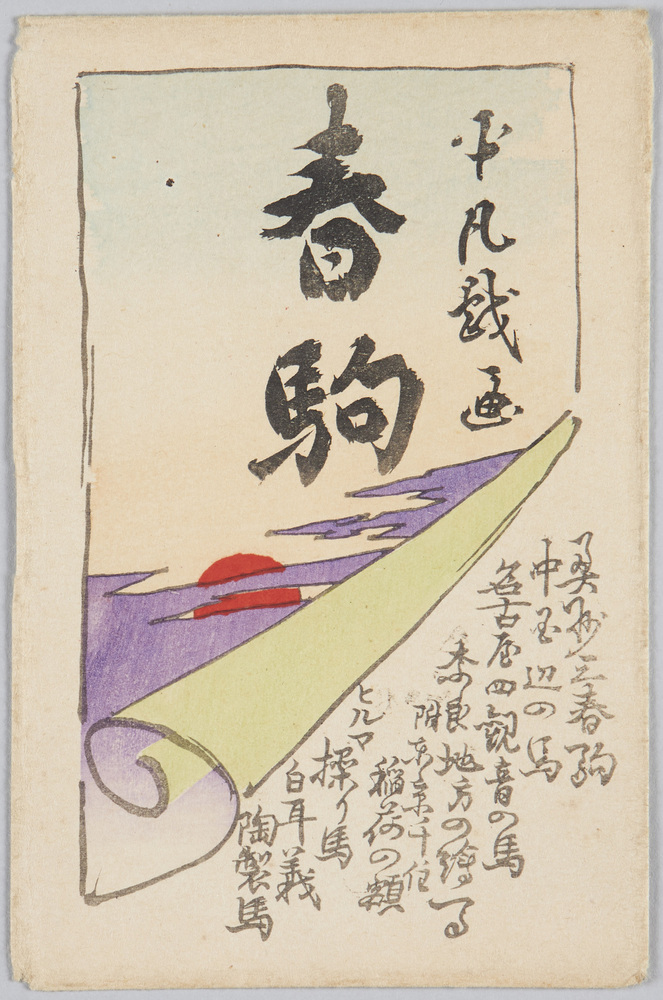 平凡戯画
春駒
奥州三春駒
中国辺の馬
名古屋四観音の馬
奈良地方の絵馬
附東京千住
稲荷の類
ヒルマ操り馬
白耳義
陶製馬